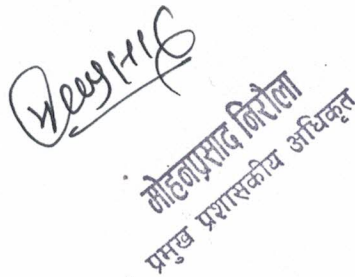 मोहनप्रसाद निरौला
प्रमुख प्रशासकीय अधिकृत